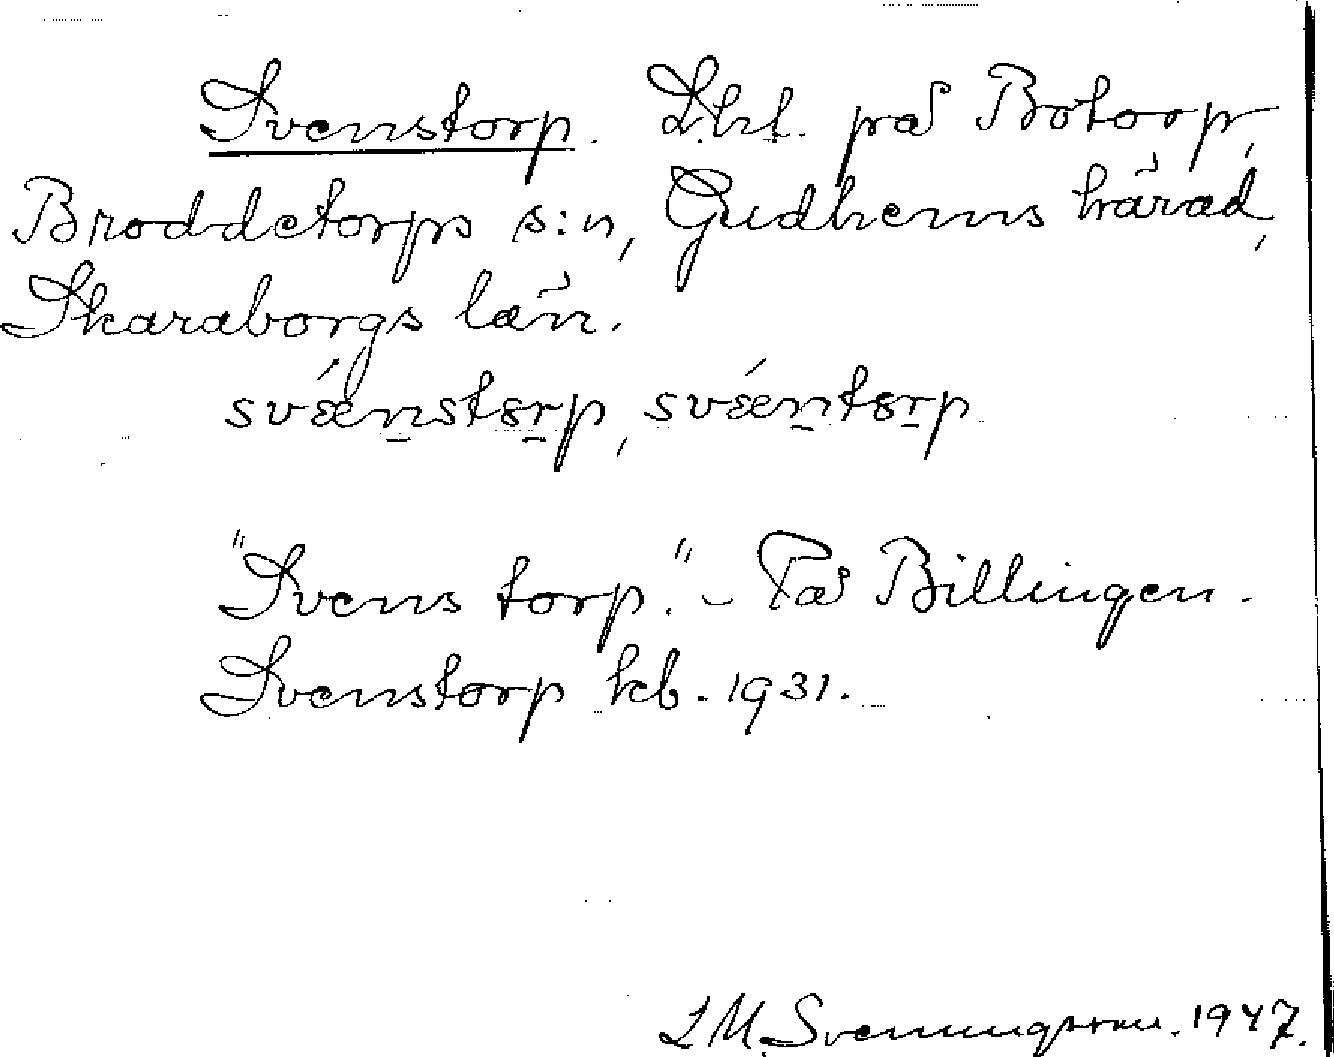 Svenstorp. Lht. på Botorp,
Broddetorps s:n, Gudhems härad,
Skaraborgs län.
svǽnstɞrp, svǽntɞrp
"Svens torp." – På Billingen.
Svenstorp kb. 1931.
L M. Svenungsson. 1947.